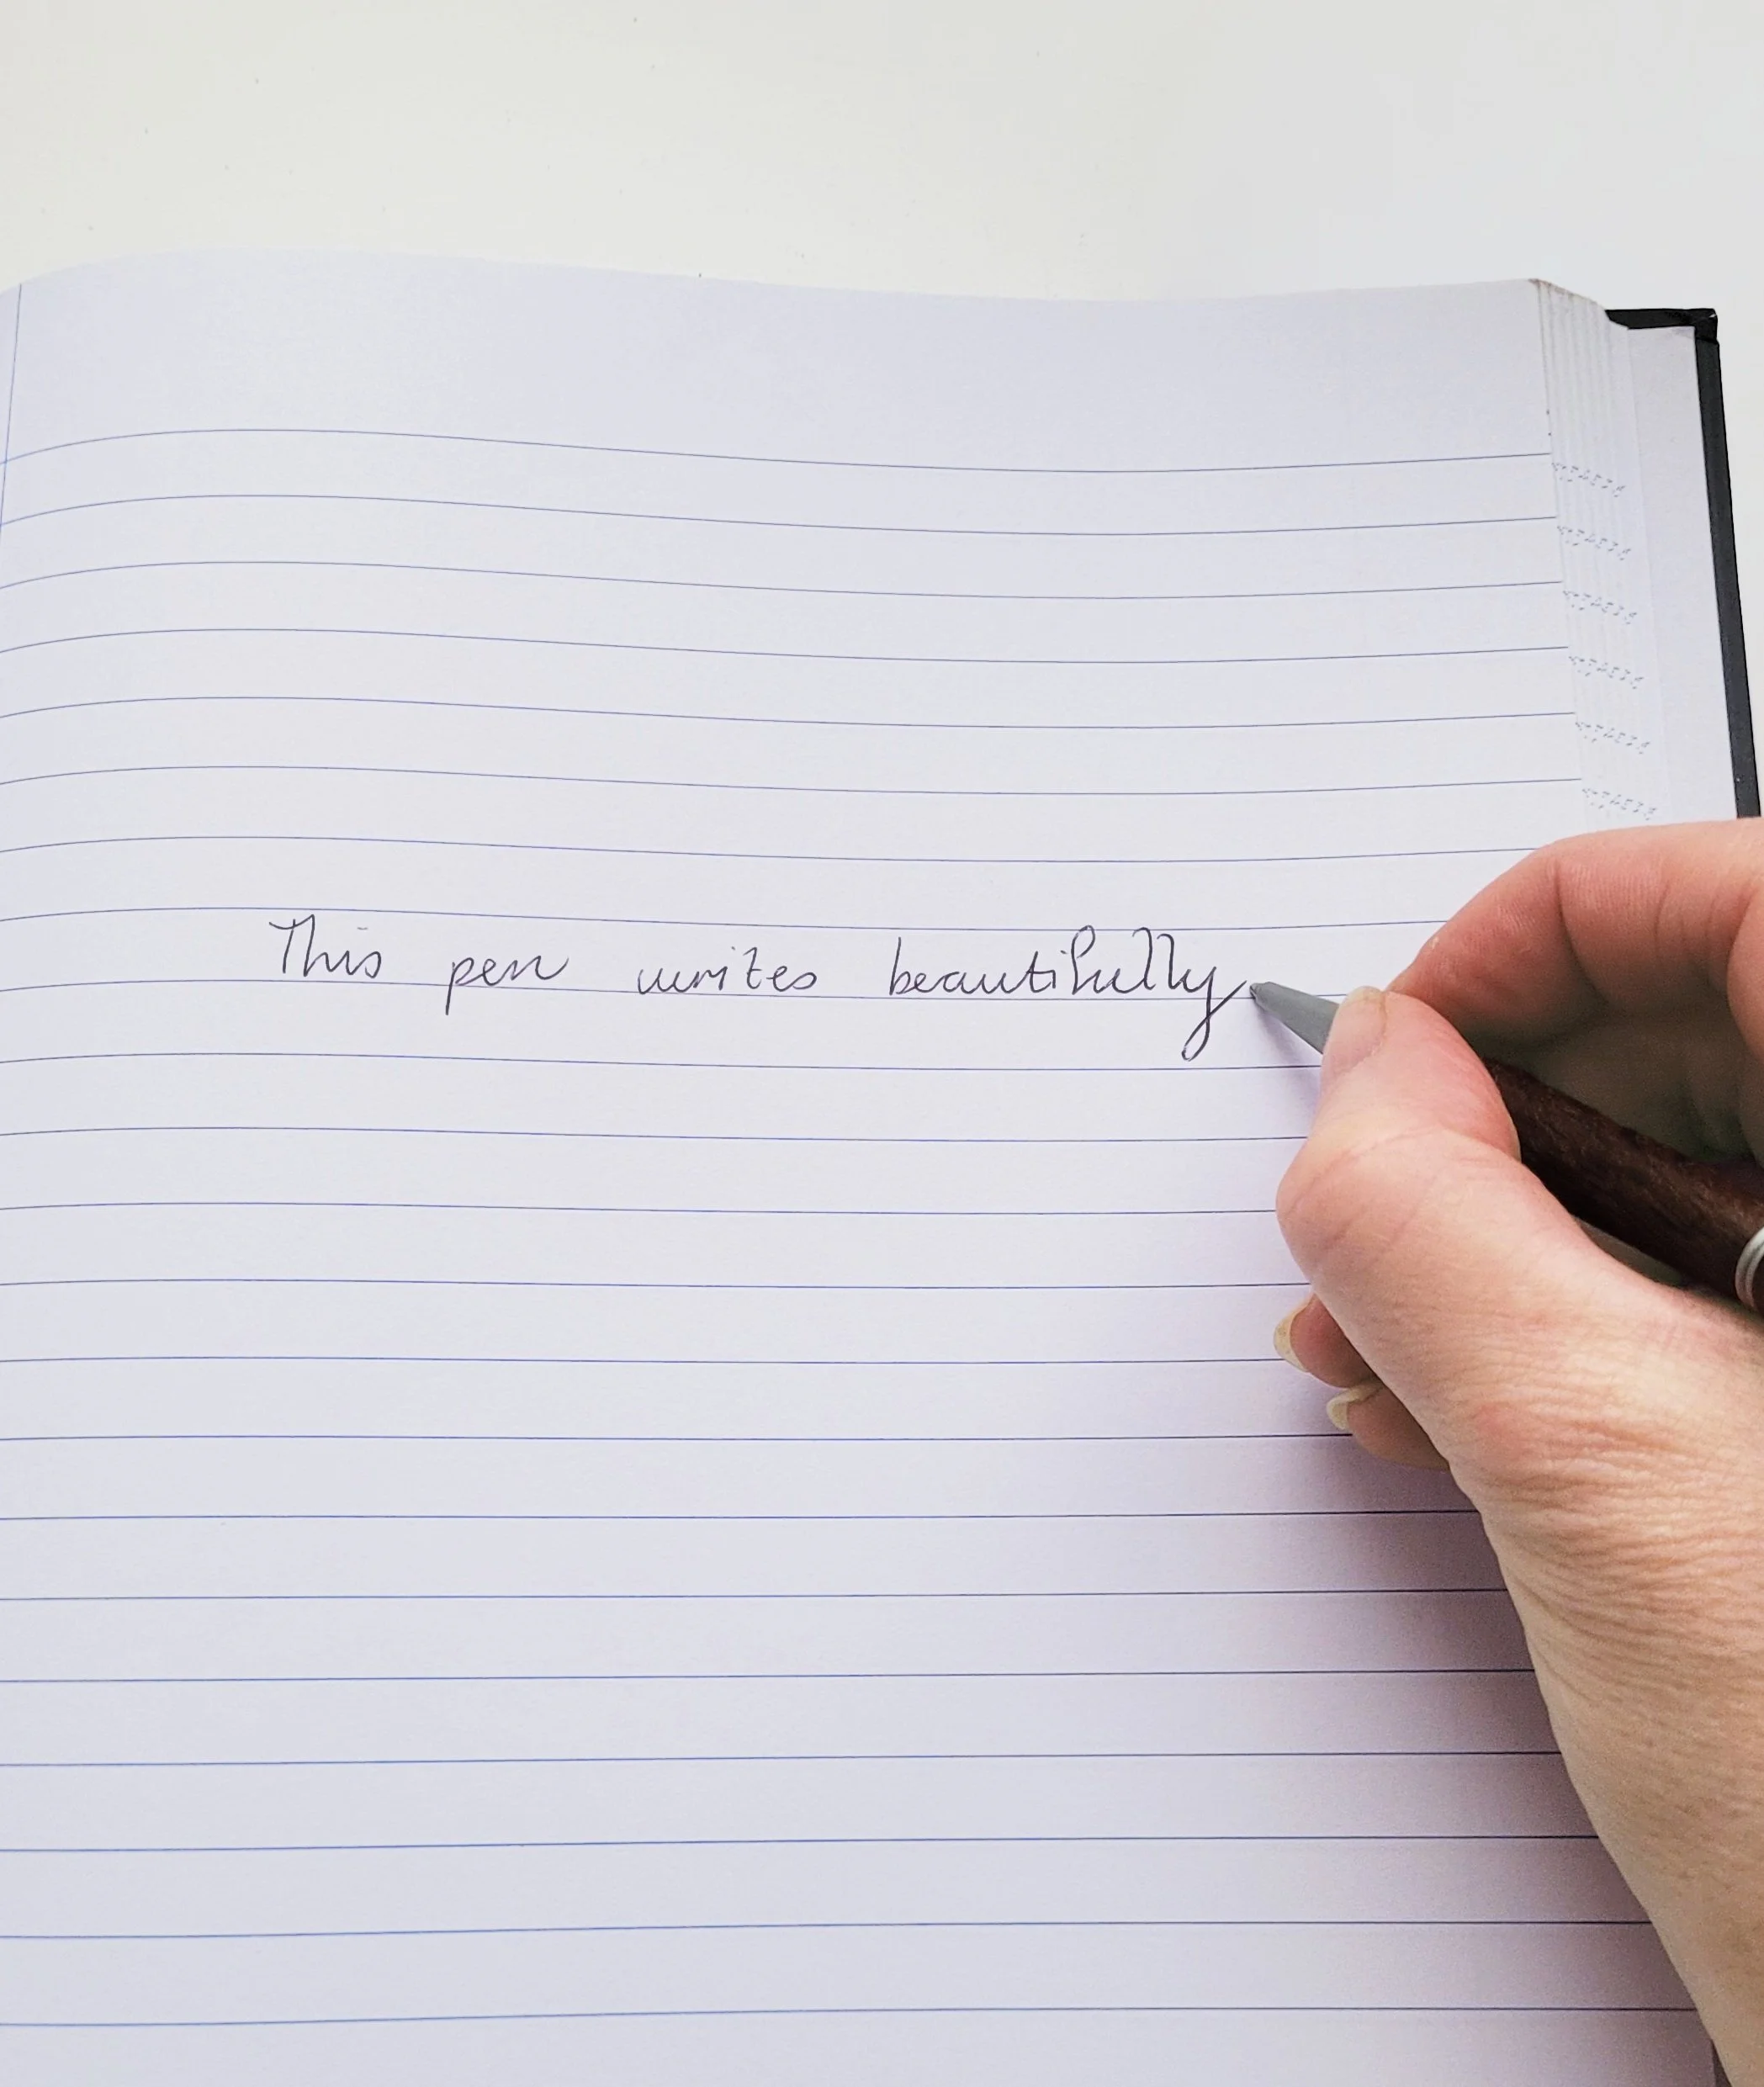 This pen writes beautifully